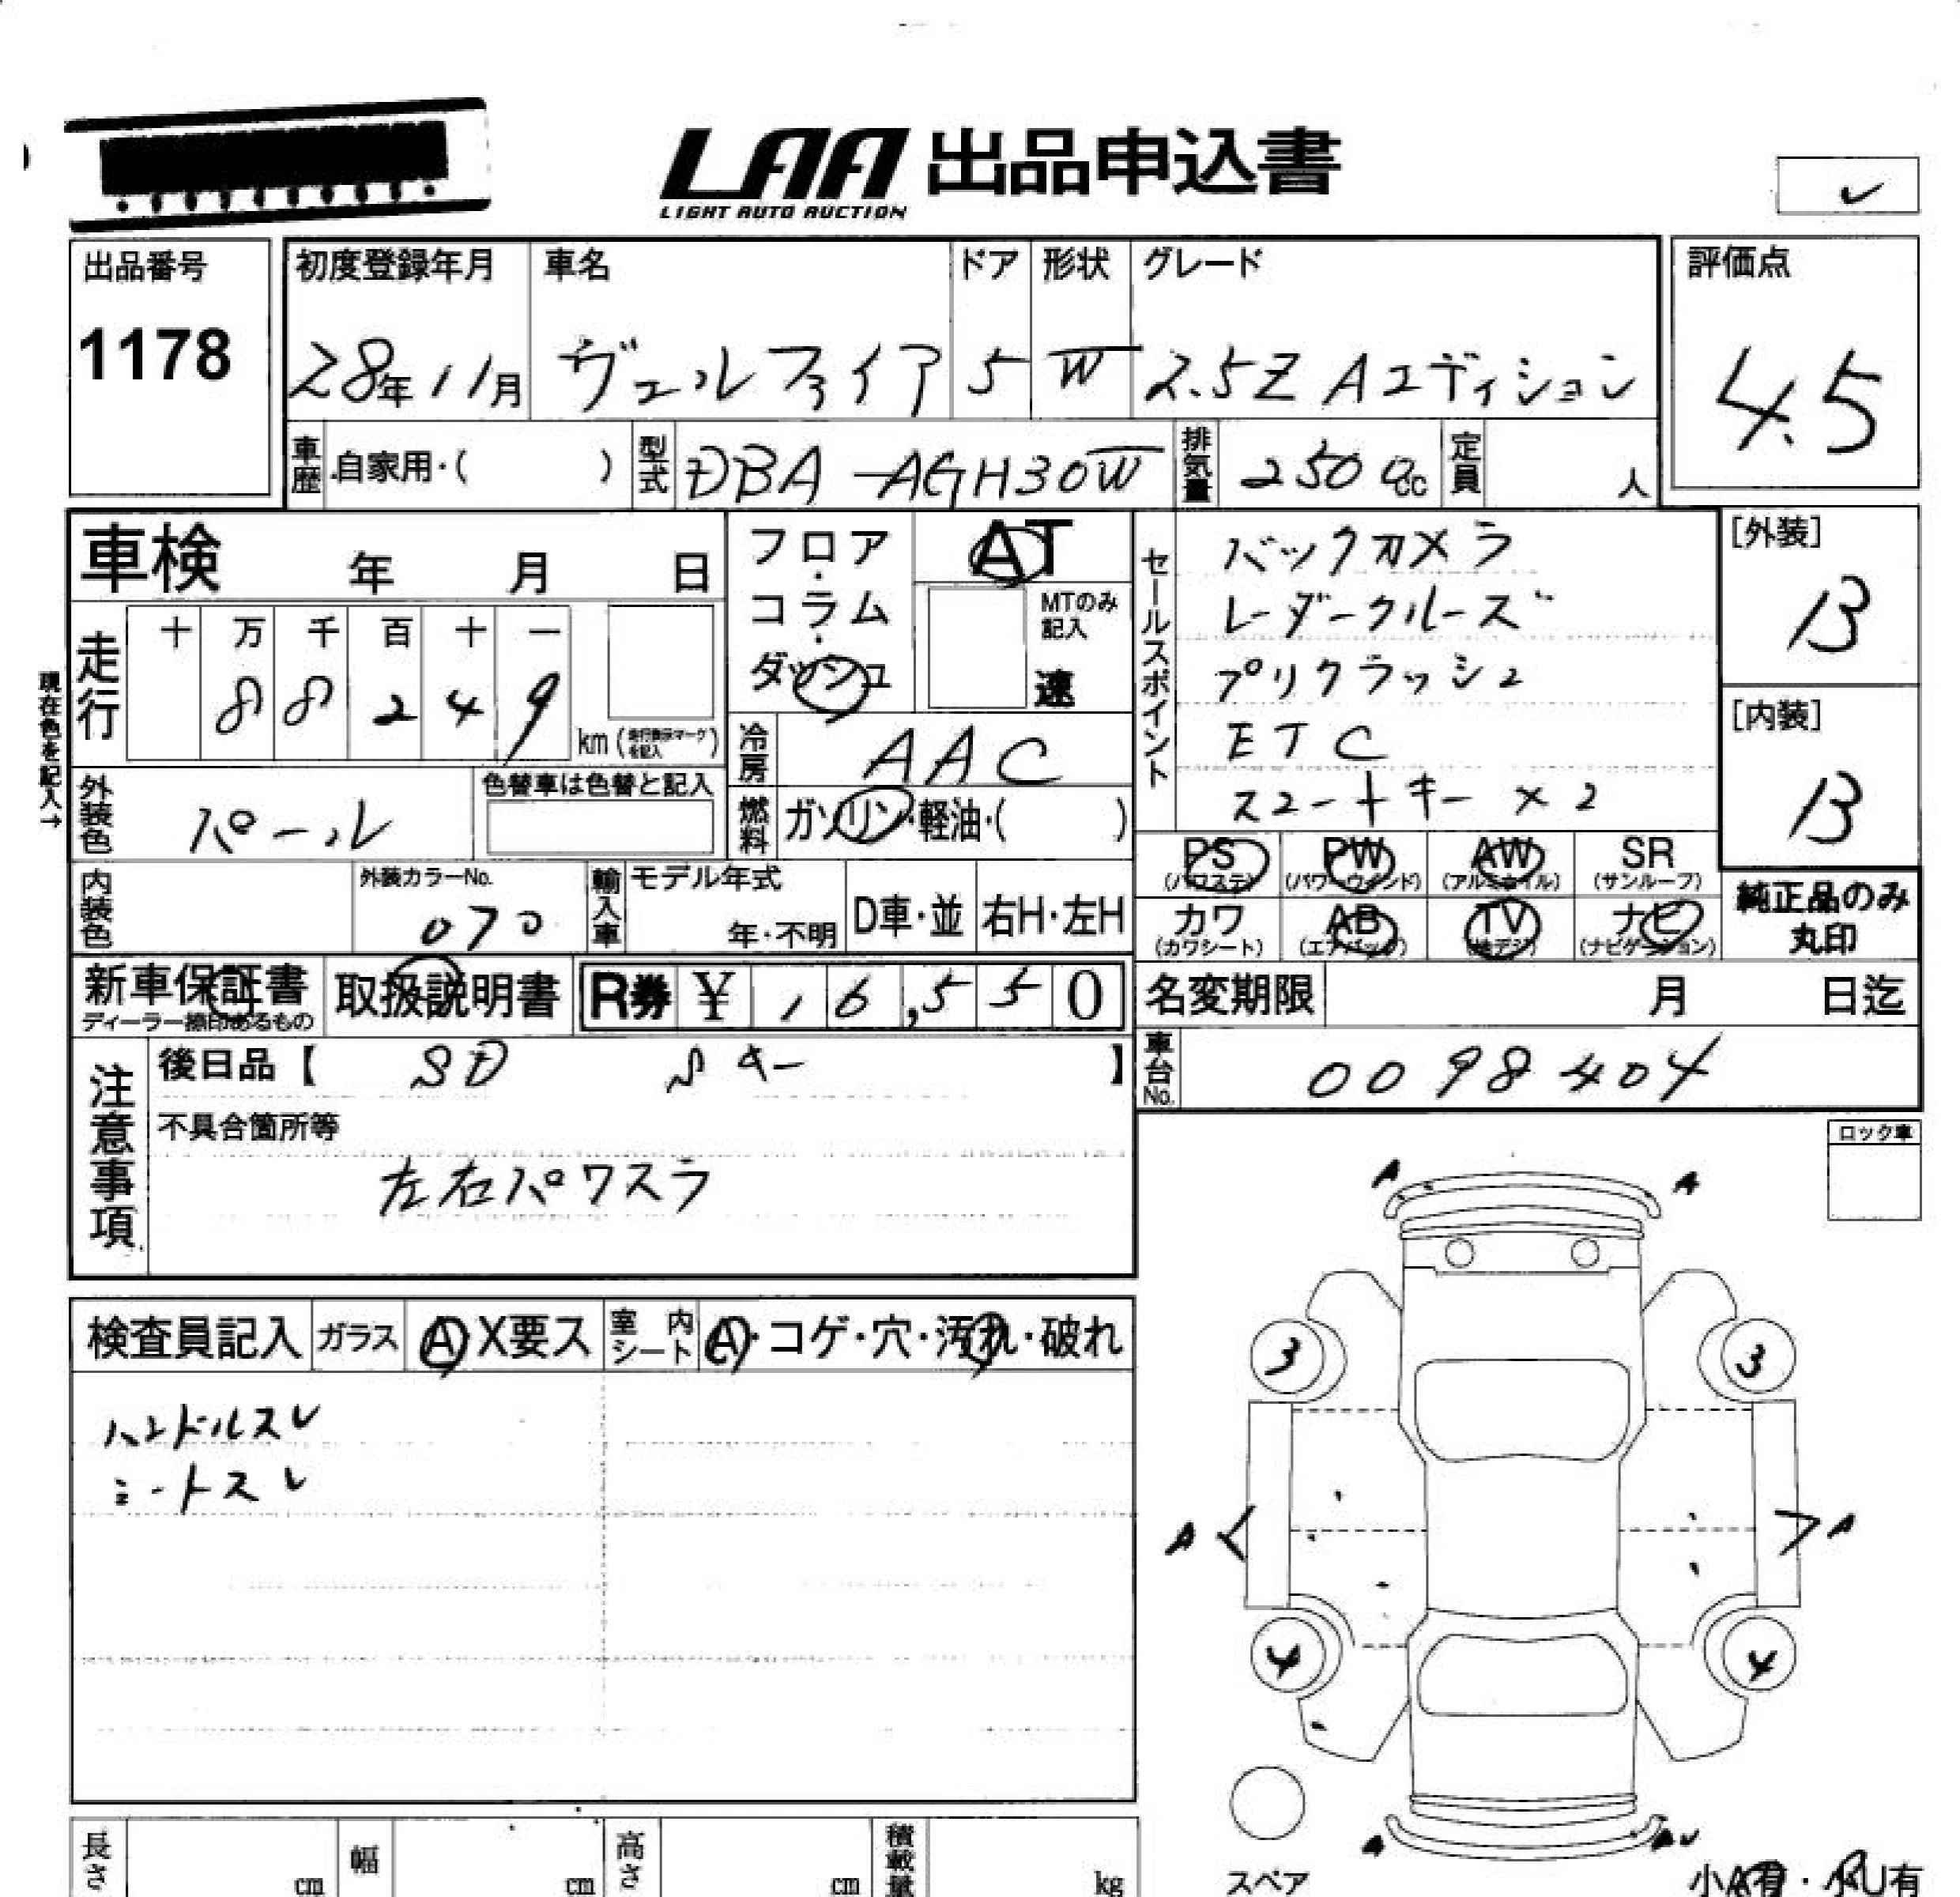 LAA 出品申込書
LIGHT AUTO AUCTION
出品番号
1178
初度登録年月 車名 ドア 形状 グレード
28年11月 ヴェルファイア 5 W 2.5Z Aエディション
評価点
4.5
車歴 自家用・( ) 型式 DBA-AGH30W 排気量 2500cc 定員 人
車検 年 月 日
フロア・コラム・ダッシュ
AT
MTのみ記入
速
セールスポイント
バックカメラ
レーダークルーズ
プリクラッシュ
ETC
スマートキー×2
[外装]
B
[内装]
B
現在色を記入→
走行 十 万 千 百 十 一
88249 km (走行表示マークを記入)
冷房 AAC
外装色 パール 色替車は色替と記入
燃料 ガソリン・軽油・( )
PS (パワステ) PW (パワーウインド) AW (アルミホイル) SR (サンルーフ)
カワ (カワシート) AB (エアバッグ) TV (地デジ) ナビ (ナビゲーション)
純正品のみ
丸印
内装色 外装カラーNo. 070 輸入車 モデル年式 年・不明 D車・並 右H・左H
新車保証書 ディーラー捺印あるもの 取扱説明書 R券 ¥ 16,550
名変期限 月 日迄
車台No. 0098404
注意事項
後日品【 SD Sキー 】
不具合箇所等
左右パワスラ
ロック車
検査員記入 ガラス A X要ス 室内シート A・コゲ・穴・汚れ・破れ
ハンドルスレ
シートスレ
A A
3 3
A A
4 4
A AU
スペア
小A有・小U有
長さ cm 幅 cm 高さ cm 積載量 kg